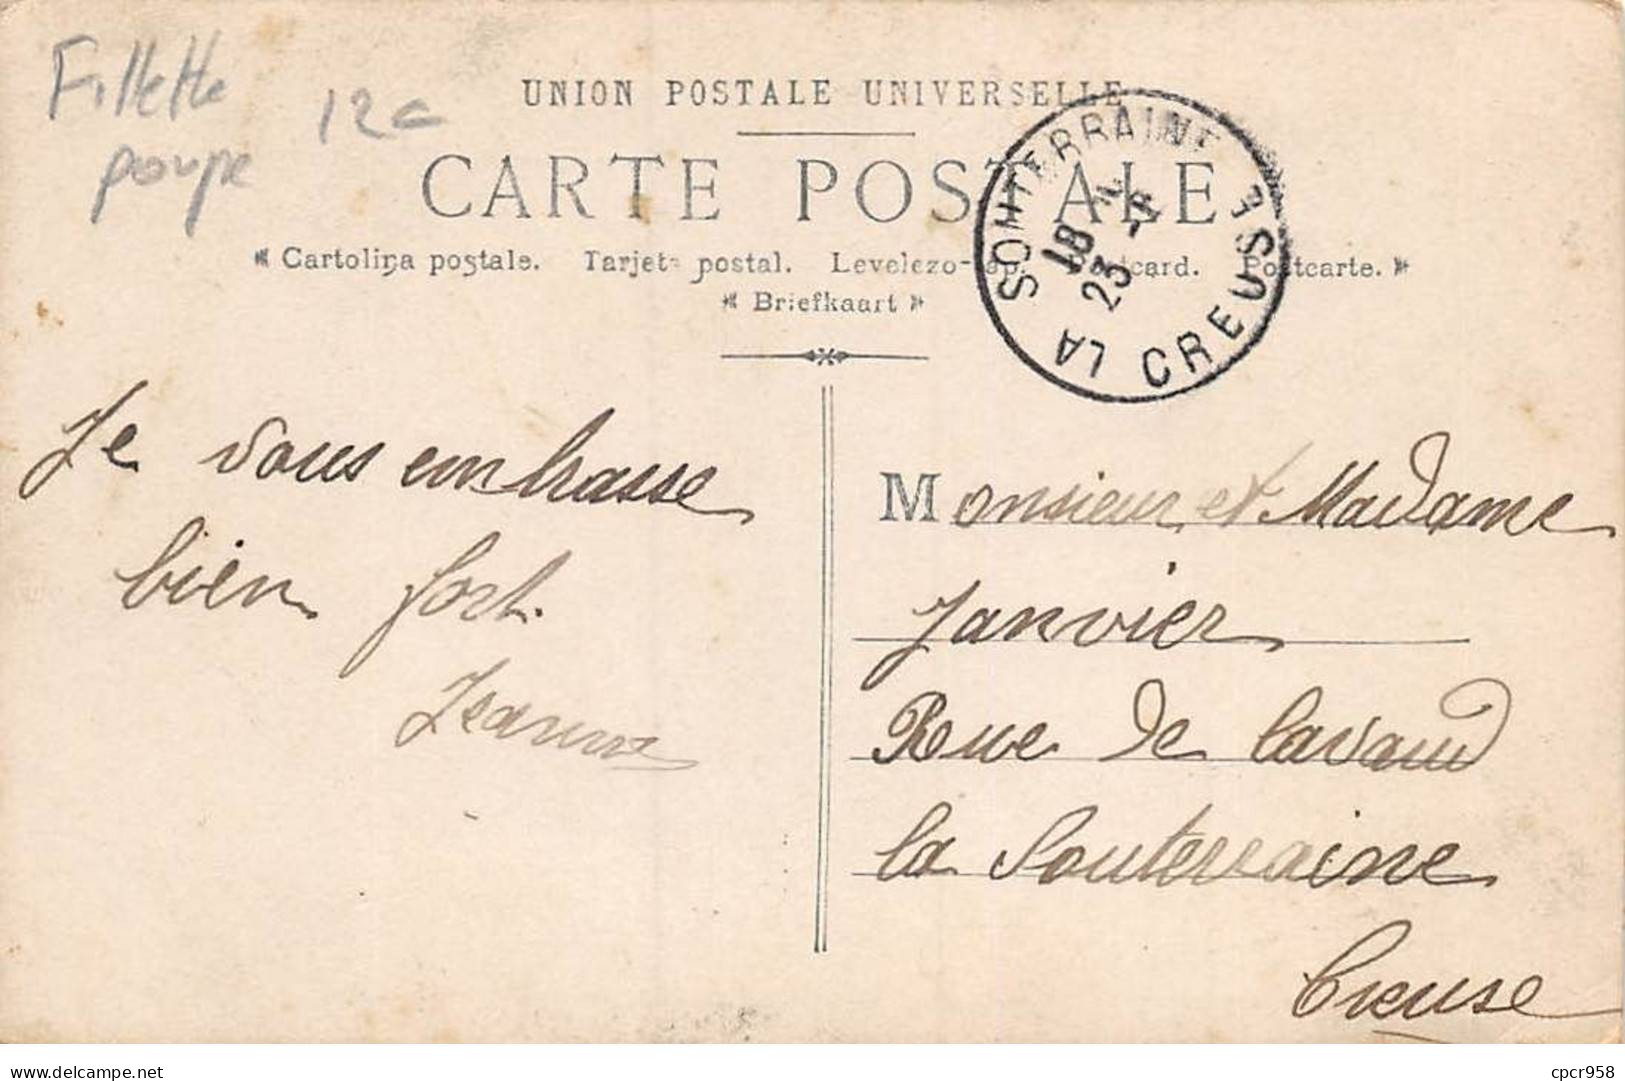 Fillette
poupe
12c
UNION POSTALE UNIVERSELLE
CARTE POSTALE
Cartolina postale. Tarjeta postal. Levelezo- ap. Postcard. Postcarte.
Briefkaart
LA SOUTERRAINE CREUSE
18
23
Je vous embrasse
bien fort.
Jeanne
Monsieur et Madame
Janvier
Rue de lavaud
la Souterraine
Creuse
www.delcampe.net
cpcr958